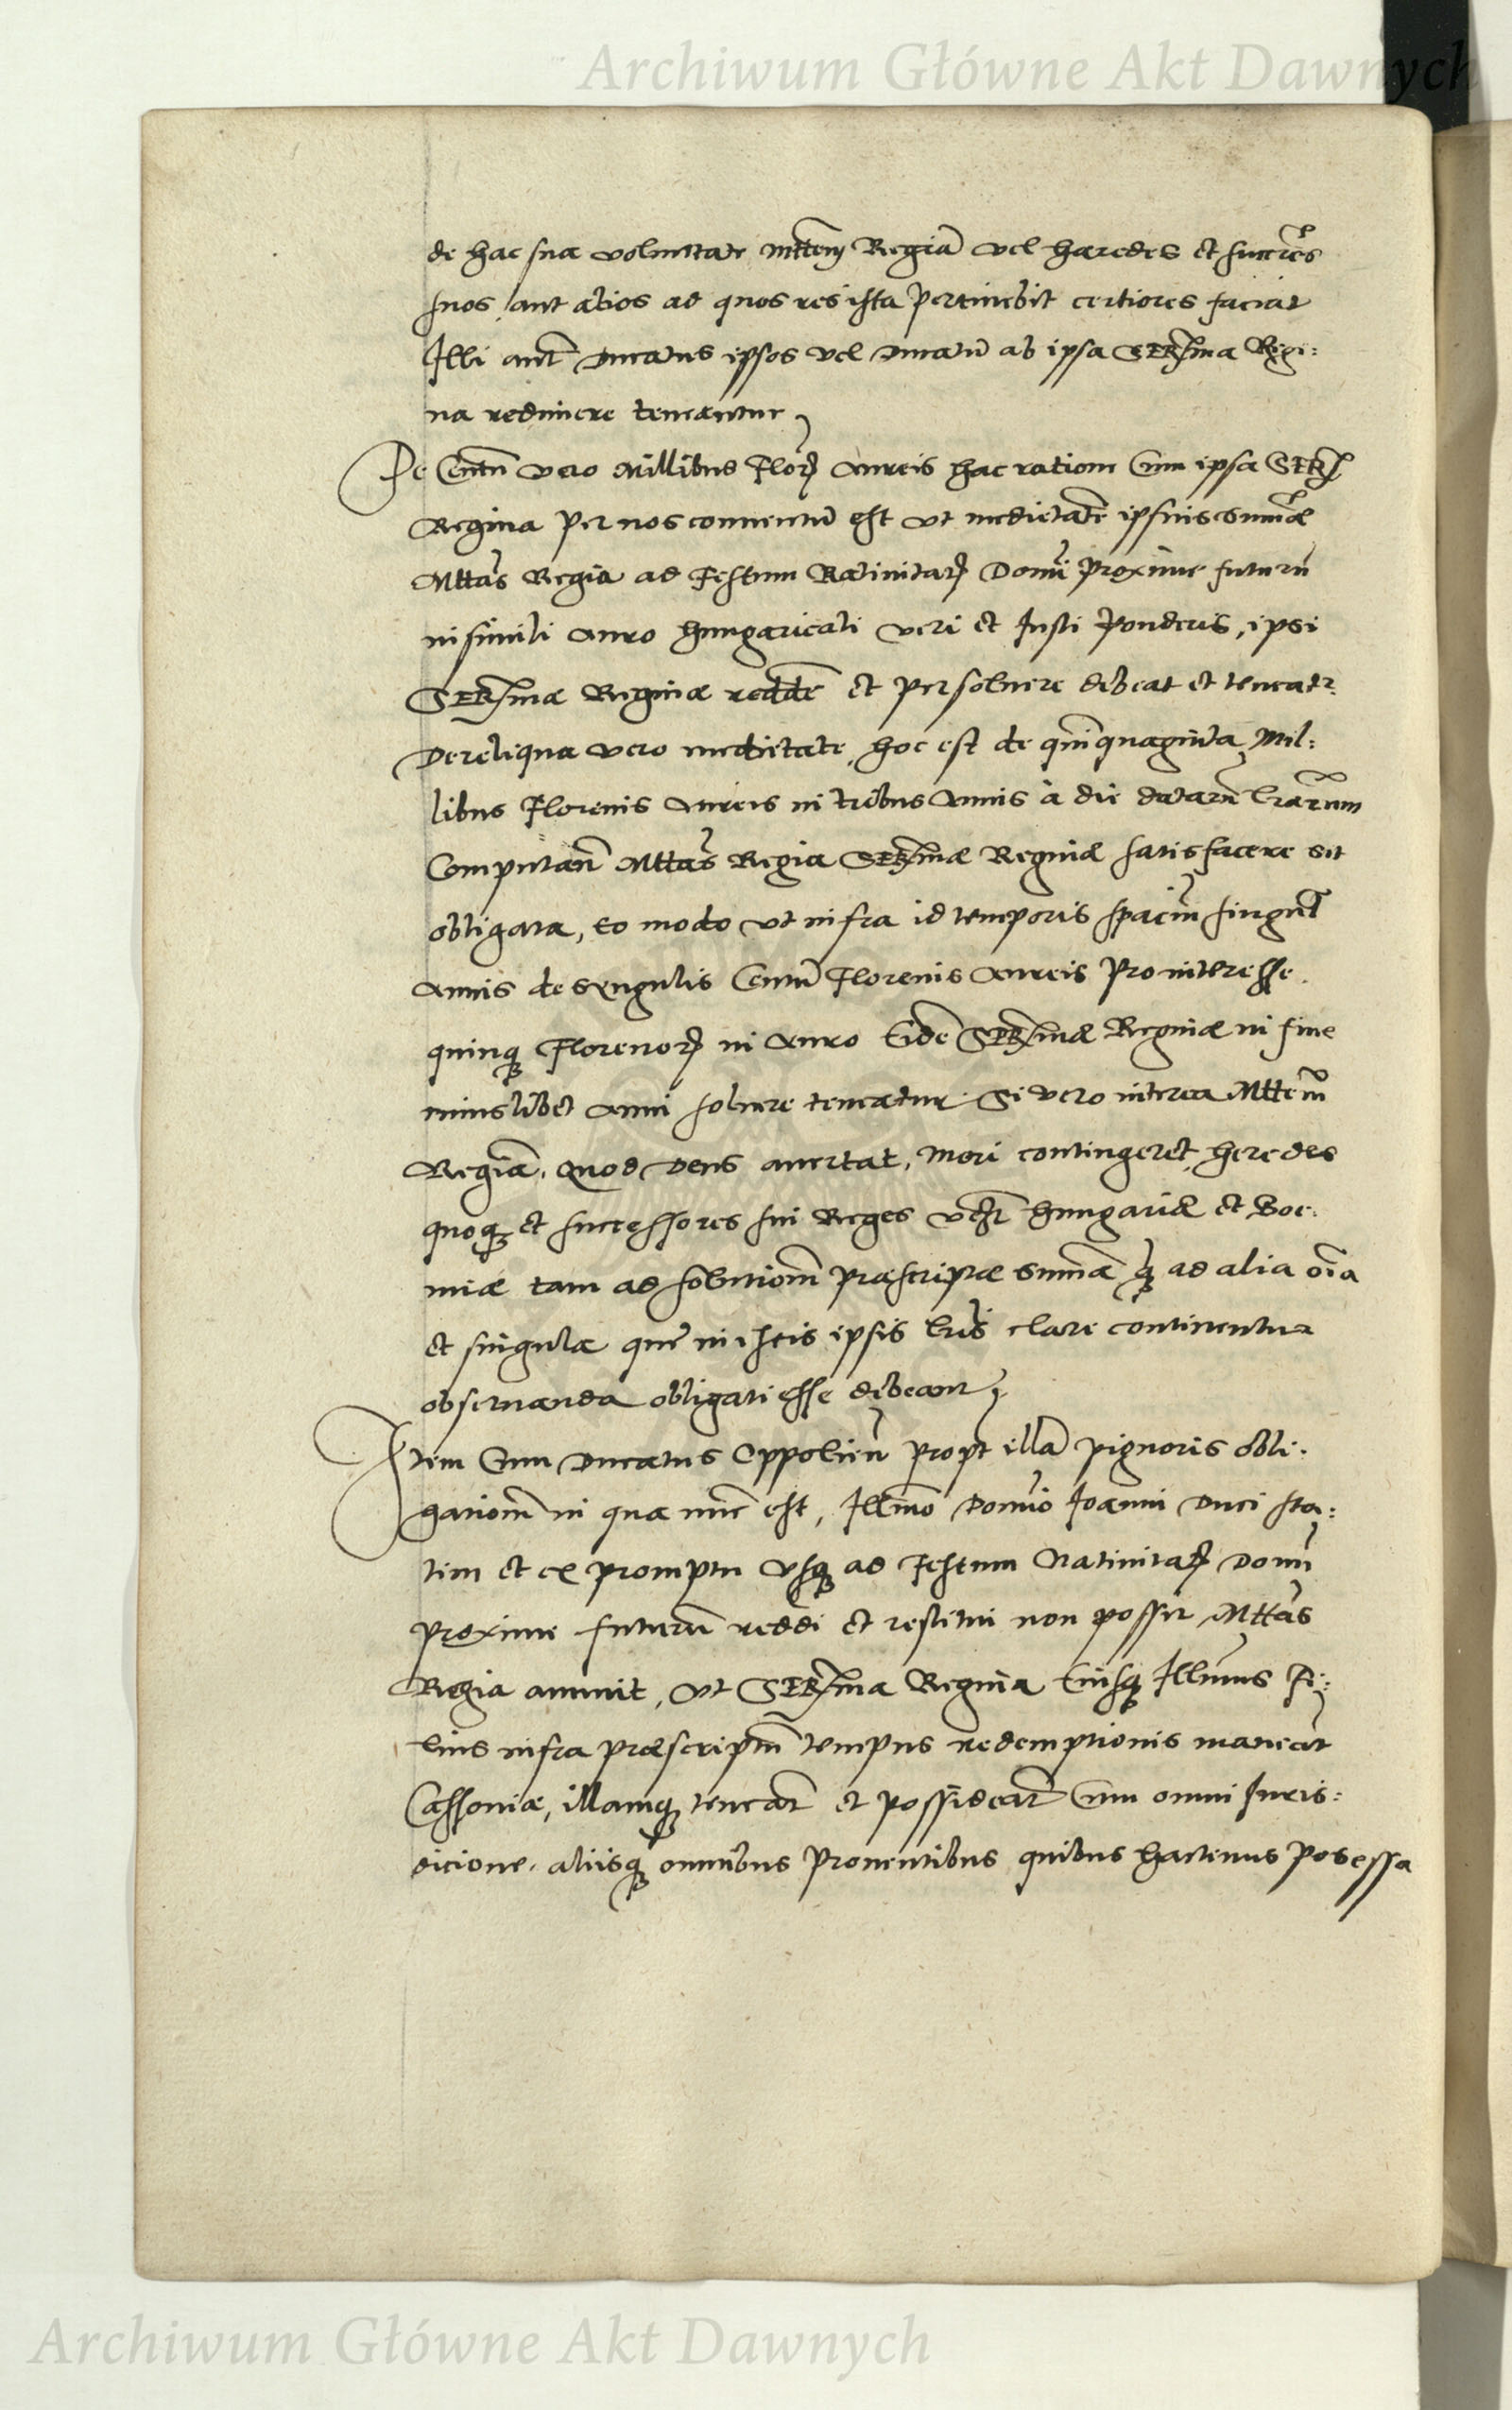 Archiwum Główne Akt Dawnych
de hac sua voluntate Mttem Regiã vel haredes et succẽres
suos, aut alios ad quos res ista pertinebit certiores faciat
Illi aut̃ Ducatus ipsos vel Ducatũ ab ipsa SERma Regi:
na redimere teneantur
De Centũ vero Millibus Floꝝ Aureis hac ratiom Cum ipsa SER
Regina per nos conventũ est vt medietatẽ ipsius sum̃æ
Mttas Regia ad Festum Nativitatꝭ Domĩ proxime futurũ
in simili auro hungaricali veri et Iusti ponderis, ipsi
SERmæ Reginæ reddẽ et persoluere debeat et teneatr
De reliqua vero medietate, hoc est de quinquaginta Mil:
libus Florenis Aureis in tribus Annis à die datarũ lrãrum
Computañ Mttas Regia SERmæ Reginæ satisfacere sit
obligata, eo modo vt infra id temporis spaciũ singul̃
Annis de singulis Centũ Florenis Aureis pro interesse
quinqꝫ Florenoꝝ in Auro Eidẽ SERmæ Reginæ in fine
cuiuslibet Anni soluere teneatur. Si vero interea Mttem
Regiã, quod Deus auertat, mori contingeret, heredes
quoqꝫ et successores sui Reges vtr̃ Hungariæ et Boe:
miæ tam ad solutionẽ præscriptæ sum̃æ qꝫ ad alia oĩa
et singula que in istis ipsis lris clare continentur
obseruanda obligati esse debeant
Item Cum Ducatus Oppolieñ propt̃ illã pignoris obli:
gationẽ in qua nunc est, Illmo Domĩo Ioanni Duci sta:
tim et ex promptu vsqꝫ ad Festum Natiuitatꝭ Domĩ
proxime futurũ reddi et restitui non possit, Mttas
Regia annuit, vt SERma Regina Eiusqꝫ Illmus Fi:
lius infra præscriptũ tempus redemptionis maneant
Cassoniæ, illamqꝫ teneãt et possideãt Cum omni Iuris:
dicione, aliisqꝫ omnibus prouentibus quibus hactenus possessa
Archiwum Główne Akt Dawnych